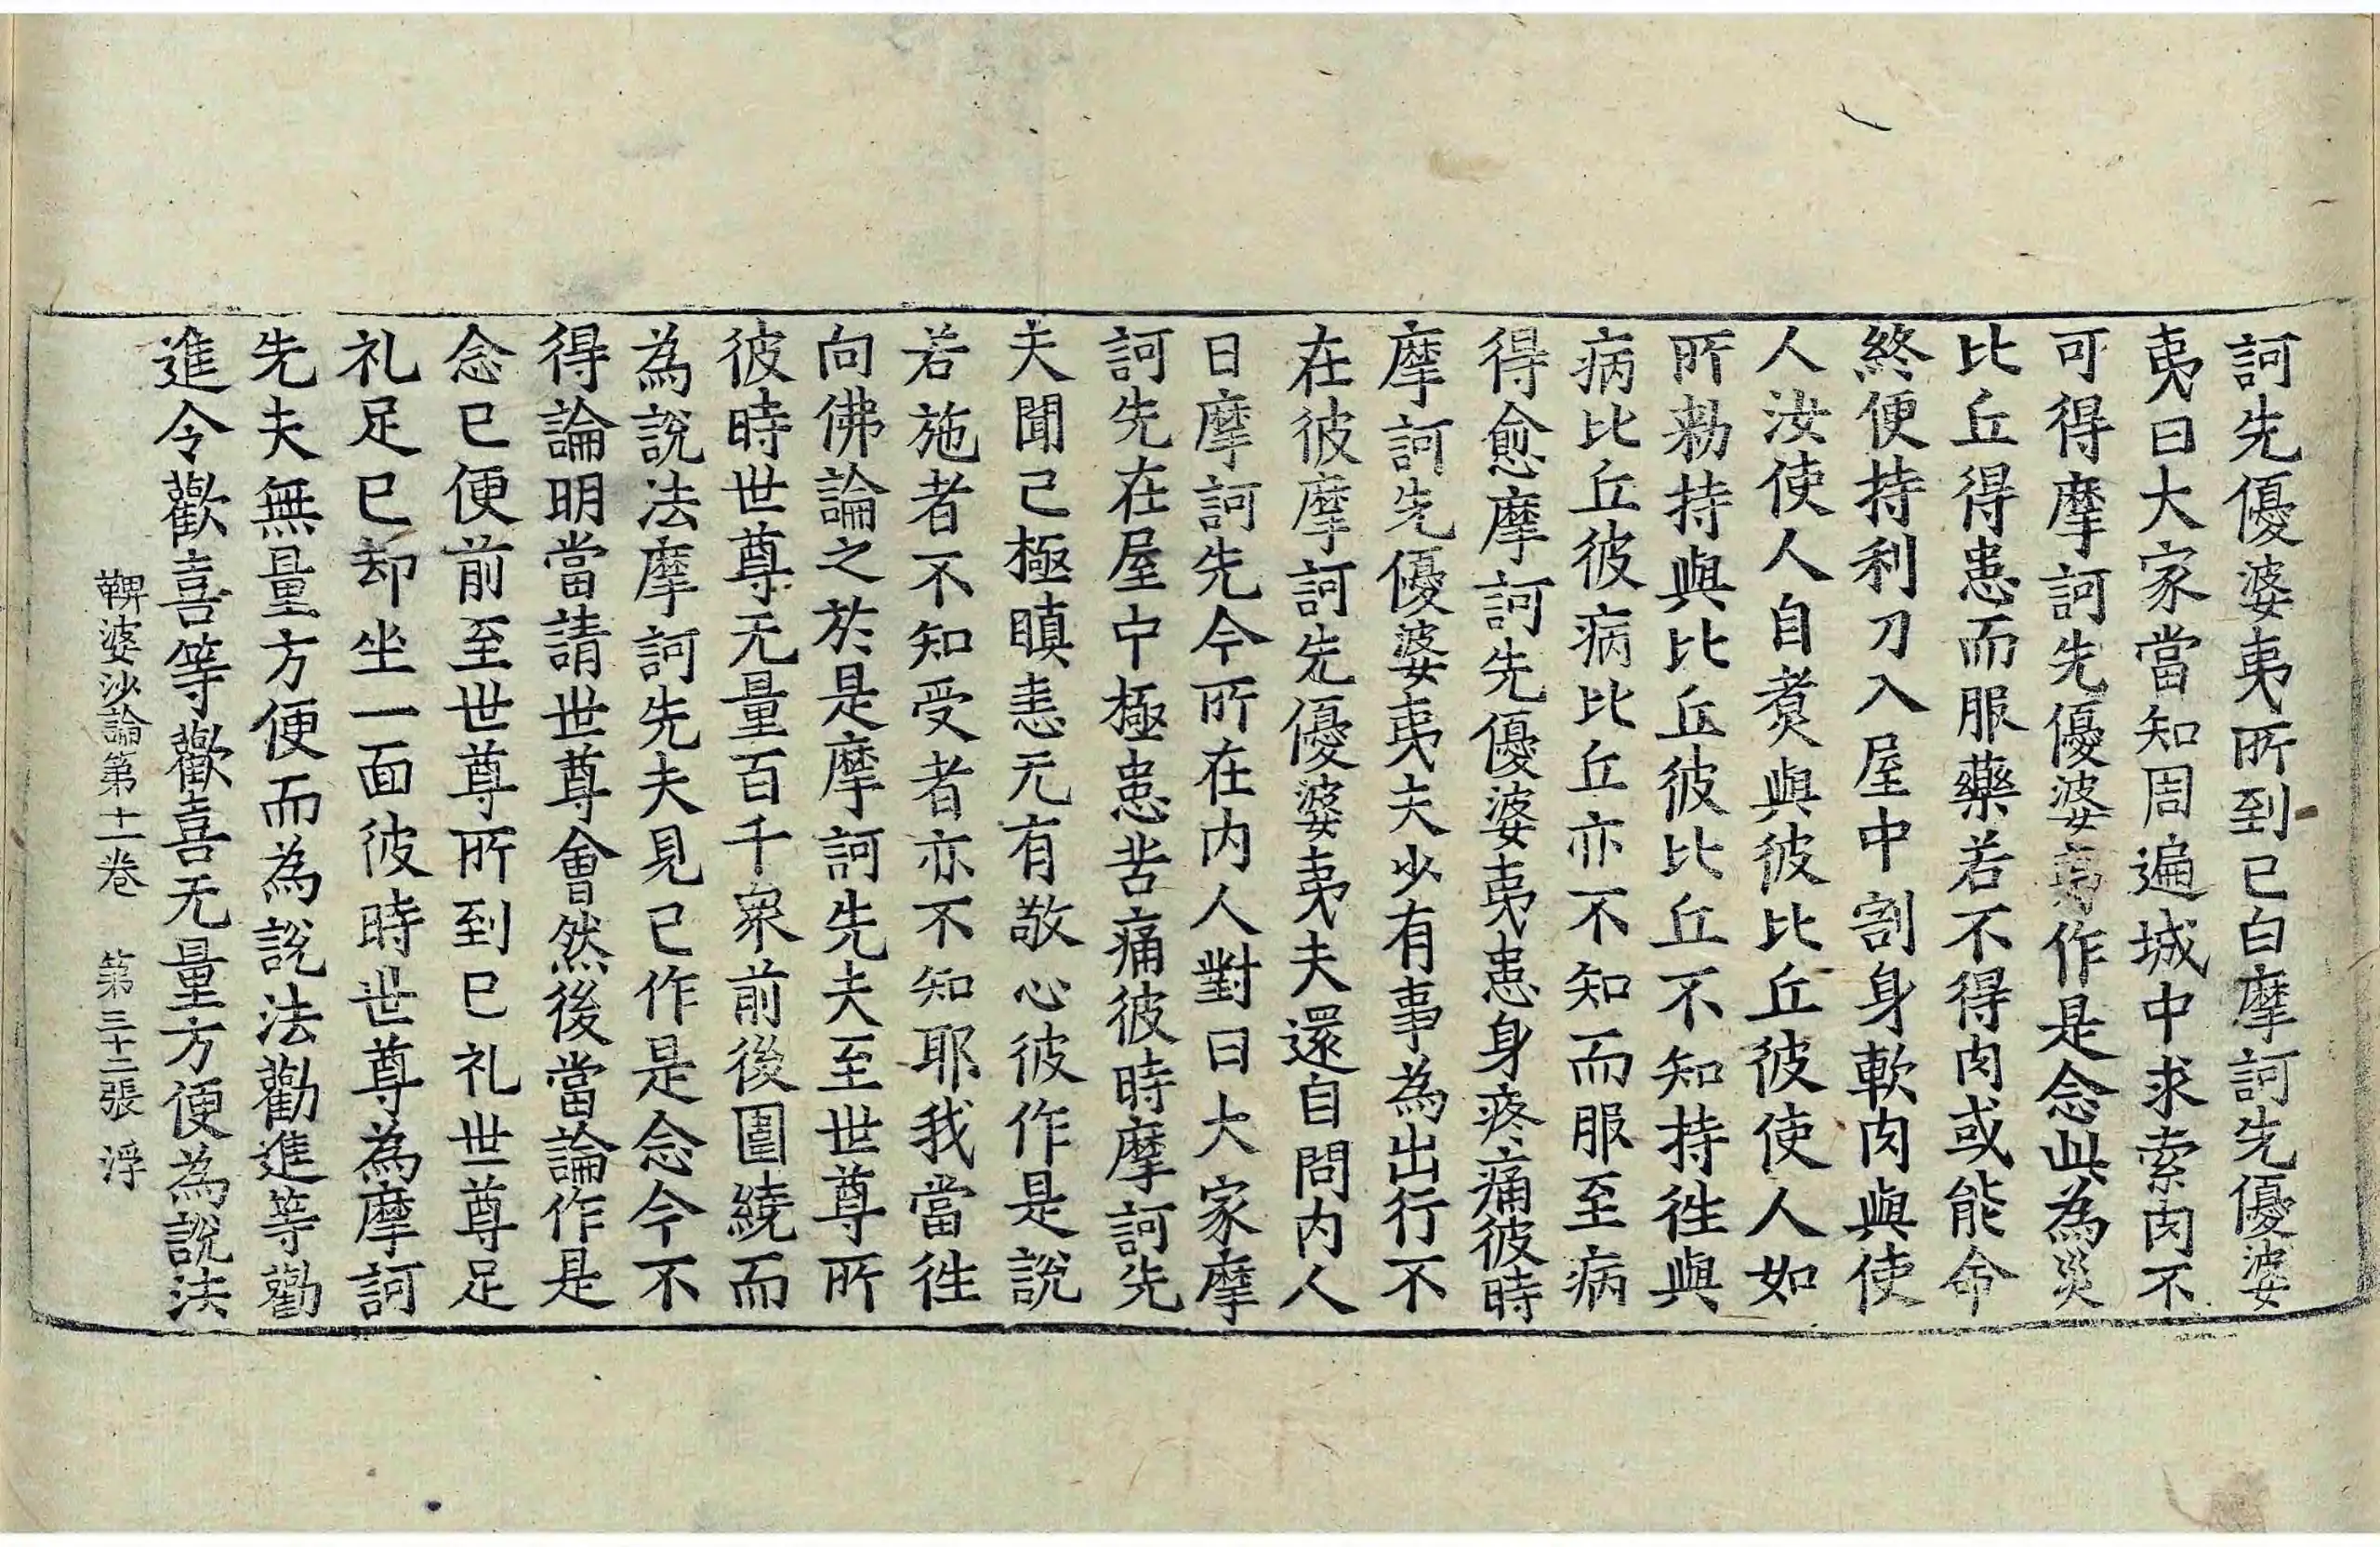 訶先優婆夷所到已白摩訶先優婆
夷曰大家當知周遍城中求索肉不
可得摩訶先優婆夷作是念此為災
比丘得患而服藥若不得肉或能命
終便持利刀入屋中割身軟肉與使
人汝使人自煑與彼比丘彼使人如
所勑持與比丘彼比丘不知持往與
病比丘彼病比丘亦不知而服至病
得愈摩訶先優婆夷患身疼痛彼時
摩訶先優婆夷夫少有事為出行不
在彼摩訶先優婆夷夫還自問内人
日摩訶先今所在内人對曰大家摩
訶先在屋中極患苦痛彼時摩訶先
夫聞已極瞋恚无有敬心彼作是說
若施者不知受者亦不知耶我當往
向佛論之於是摩訶先夫至世尊所
彼時世尊无量百千衆前後圍繞而
為說法摩訶先夫見已作是念今不
得論明當請世尊會然後當論作是
念已便前至世尊所到已礼世尊足
礼足已却坐一面彼時世尊為摩訶
先夫無量方便而為說法勸進等勸
進令歡喜等歡喜无量方便為說法
鞞婆沙論第十一卷　第三十二張　浮